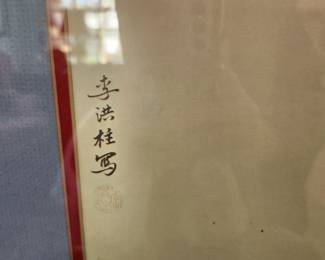 李洪桂写